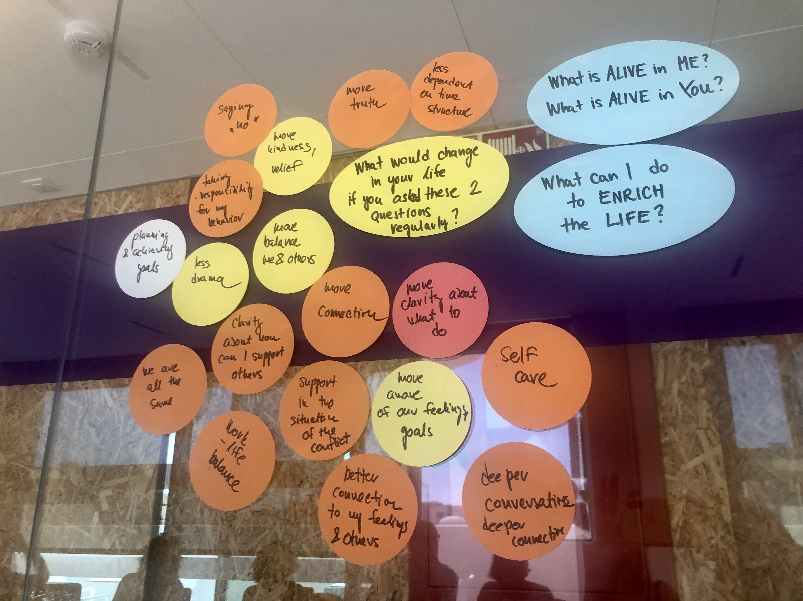 What is ALIVE in ME?
What is ALIVE in YOU?
What can I do
to ENRICH
the LIFE?
What would change
in your life
if you asked these 2
questions
regularly?
less
dependent
on time
structure
more
truth
saying
"no"
more
kindness,
relief
taking
responsibility
for my
behavior
planning
& achieving
goals
less
drama
more
balance
me & others
more
connection
more
clarity about
what to
do
Clarity
about how
can I support
others
we are
all the
same
Support
in the
situation
of the conflict
more
aware
of our feelings
goals
Self
care
work
-life
balance
better
connection
to my feelings
& others
deeper
conversations
deeper
connection